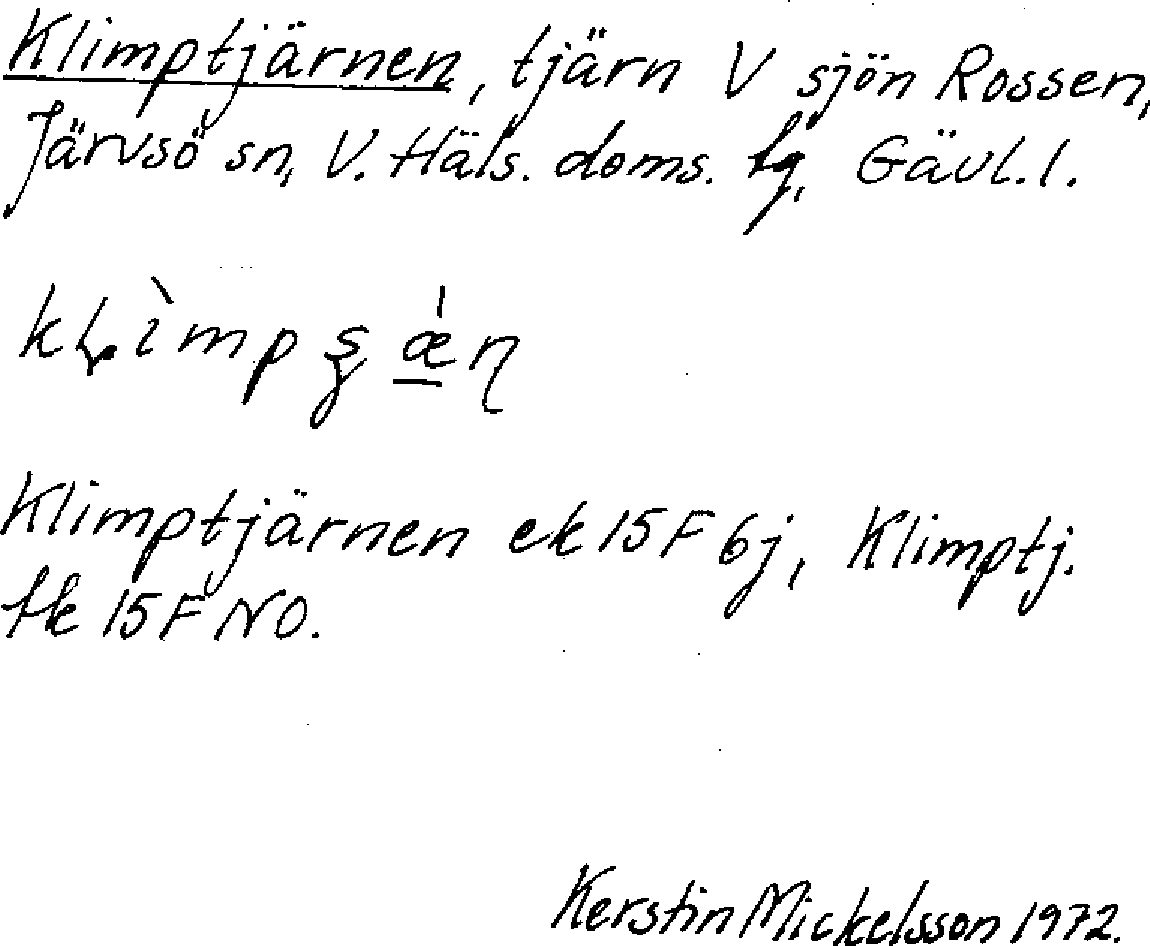 Klimptjärnen, tjärn V sjön Rossen,
Järvsö sn, V. Häls. doms. lg, Gävl. l.
Klimptjärnen ek 15F 6j, Klimptj.
tk 15F NO.
Kerstin Mickelsson 1972.